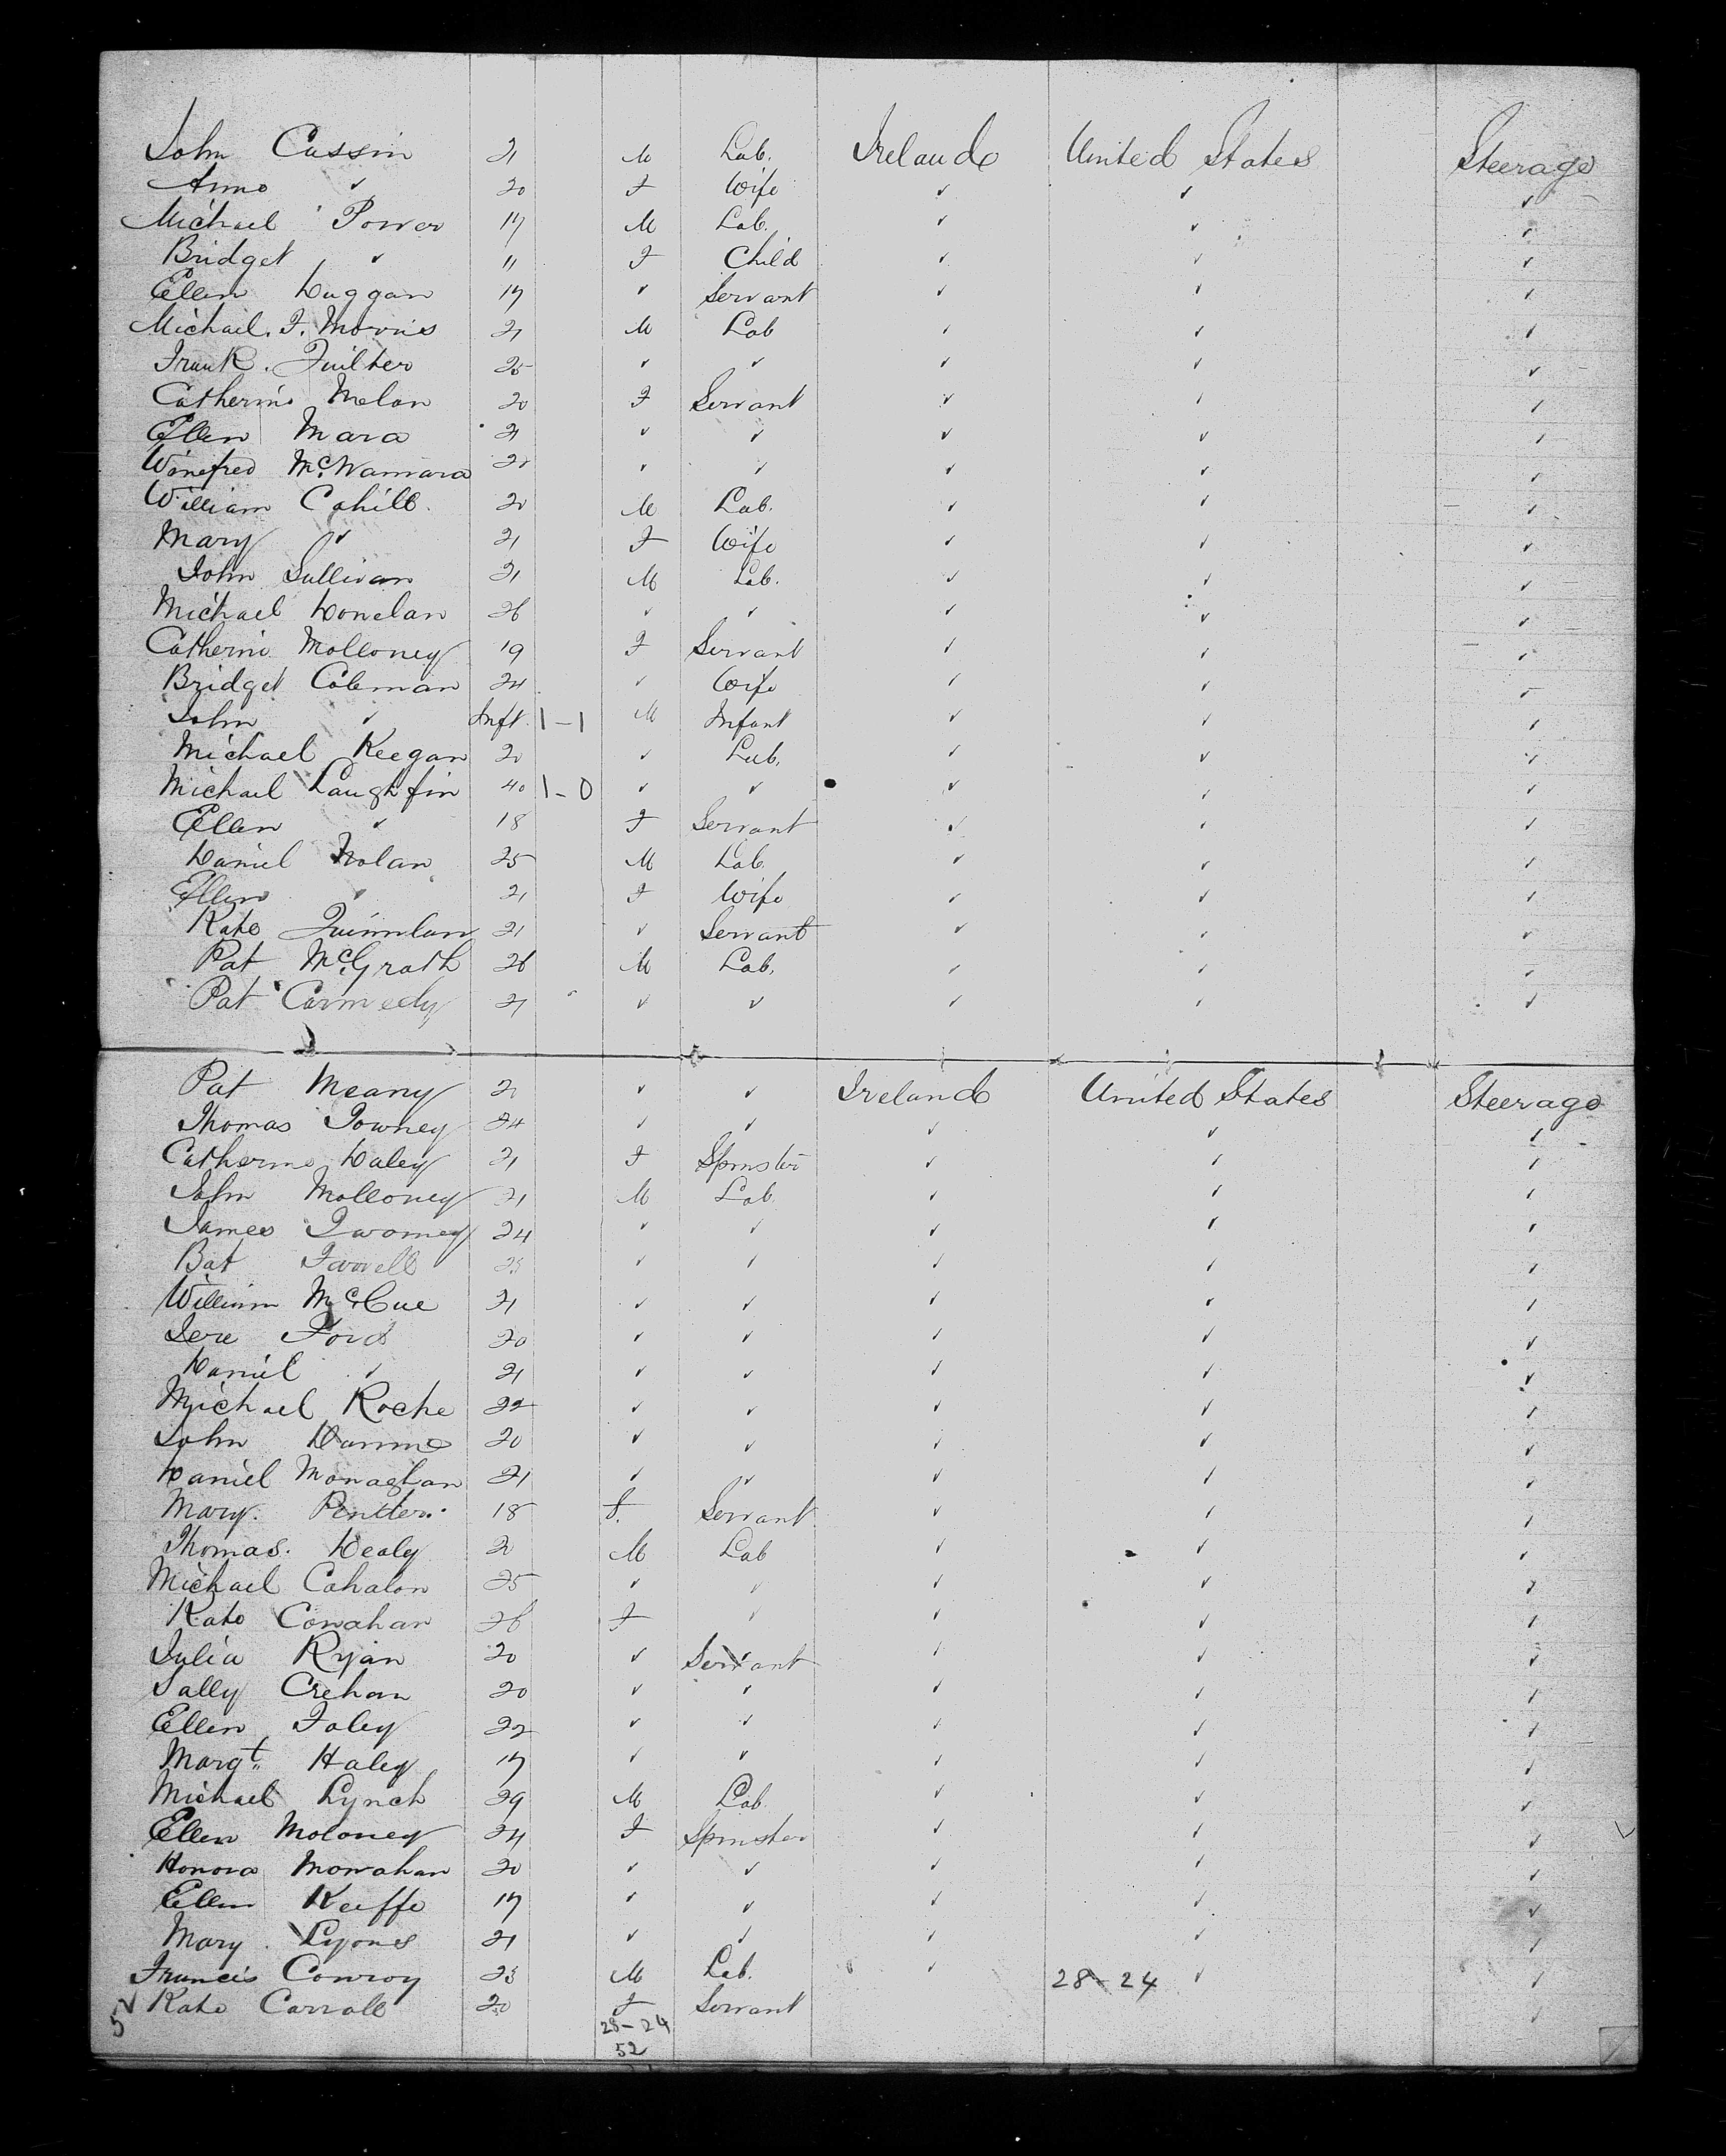 John Cassin 21 M Lab. Ireland United States Steerage
Anne " 20 F Wife " " "
Michael Power 17 M Lab. " " "
Bridget " 11 F Child " " "
Ellen Duggan 17 " Servant " " "
Michail. F. Morris 21 M Lab " " "
Frank. Quilter 25 " " " " "
Catherine 20 F Servant " " "
Ellen Mara 21 " " " " "
Winefred McNamara 20 " " " " "
William Cahill. 20 M Lab. " " "
Mary " 21 F Wife " " "
John Sullivan 21 M Lab. " " "
Michael Donelan 26 " " " " "
Catherine Molloney 19 F Servant " " "
Bridget Coleman 24 " Wife " " "
John " Inft. 1-1 M Infant " " "
Michael Keegan 20 " Lab. " " "
Michael 40 1-0 " " " " "
Ellen " 18 F Servant " " "
Daniel Nolan 25 M Lab. " " "
Ellen " 21 F Wife " " "
Kate Quinnlan 21 " Servant " " "
Pat McGrath 26 M Lab. " " "
Pat 21 " " " " "
Pat Meany 20 " " Ireland United States Steerage
Thomas 24 " " " " "
Catherine Daley 21 F Spinster " " "
John Molloney 21 M Lab " " "
James Twomey 24 " " " " "
Bat Farrell 23 " " " " "
William McCue 21 " " " " "
Jere Ford 20 " " " " "
Daniel " 21 " " " " "
Michael Roche 22 " " " " "
John 20 " " " " "
Daniel Monaghan 21 " " " " "
Mary. 18 F. Servant " " "
Thomas. Healy 20 M Lab " " "
Michael Cahalan 25 " " " " "
Kate Conahan 26 F " " " "
Julia Ryan 20 " Servant " " "
Sally Crehan 20 " " " " "
Ellen Foley 22 " " " " "
Margt. Haley 17 " " " " "
Michael Lynch 29 M Lab. " " "
Ellen Moloney 24 F Spinster " " "
Honora Monahan 20 " " " " "
Ellen Keiffe 17 " " " " "
Mary. Lyons 21 " " " " "
Francis Conroy 23 M Lab. " 28-24 " "
52 Kate Carroll 20 F Servant "
28-24
52